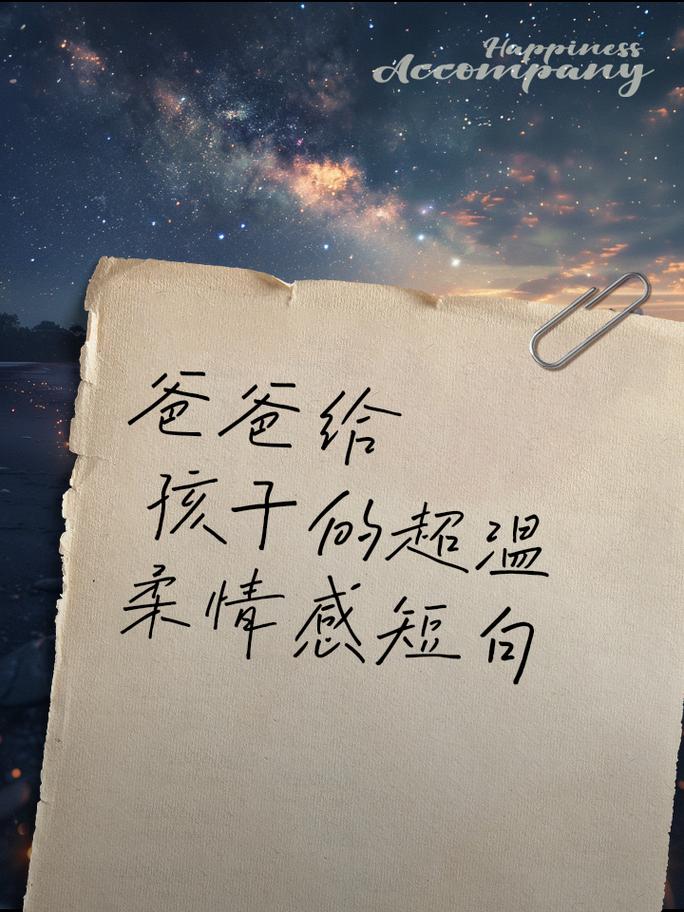 Happiness
Accompany
爸爸给
孩子的超温
柔情感短句